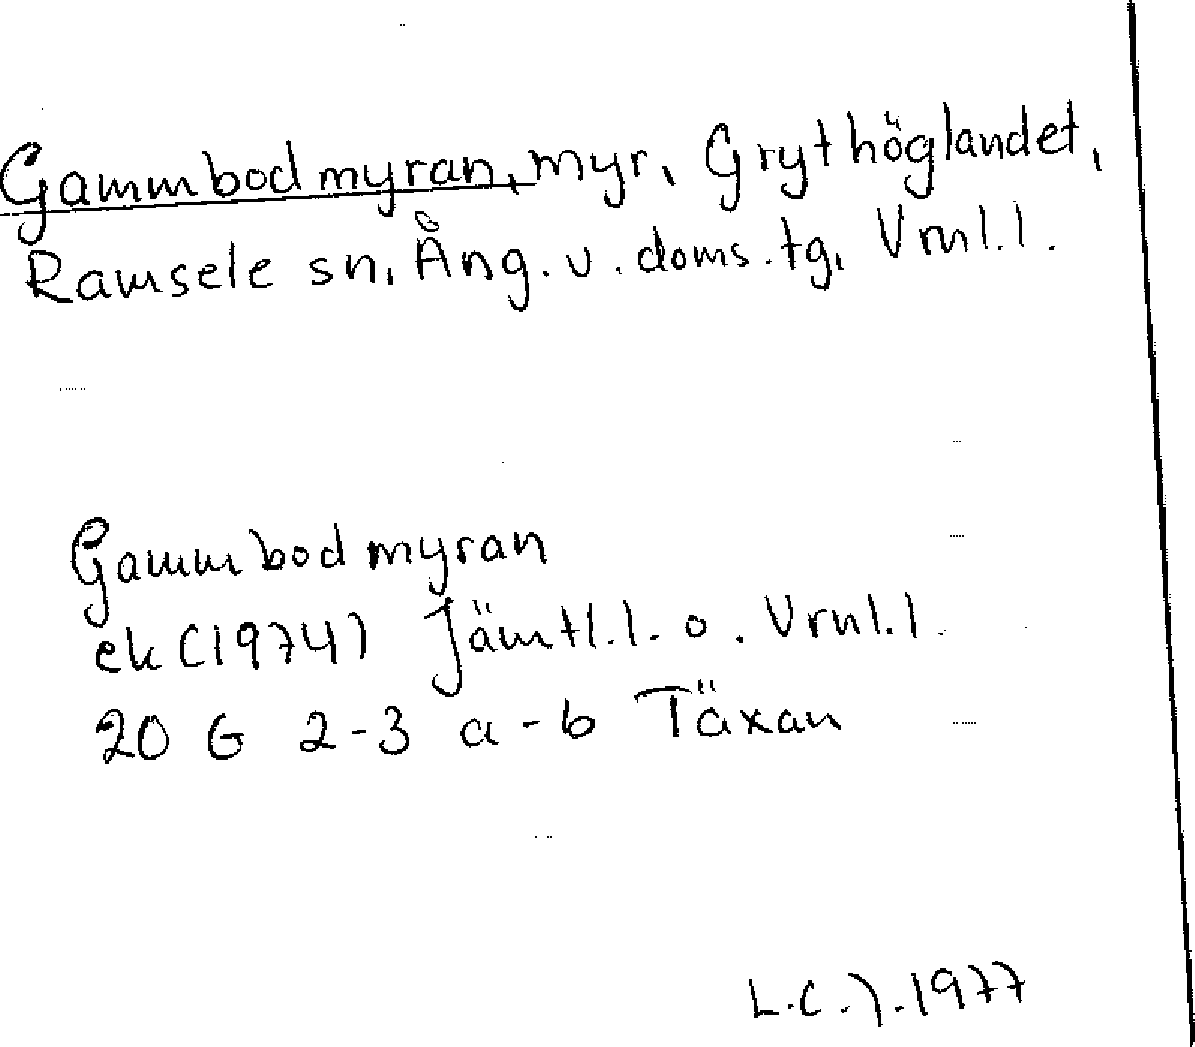 Gammbodmyran, myr, Grythöglandet,
Ramsele sn, Ång. v. doms. tg, Vrnl.l.
Gammbodmyran
ek (1974) Jämtl.l. o. Vrnl.l.
20 G 2-3 a-b Täxan
L.C.J. 1977